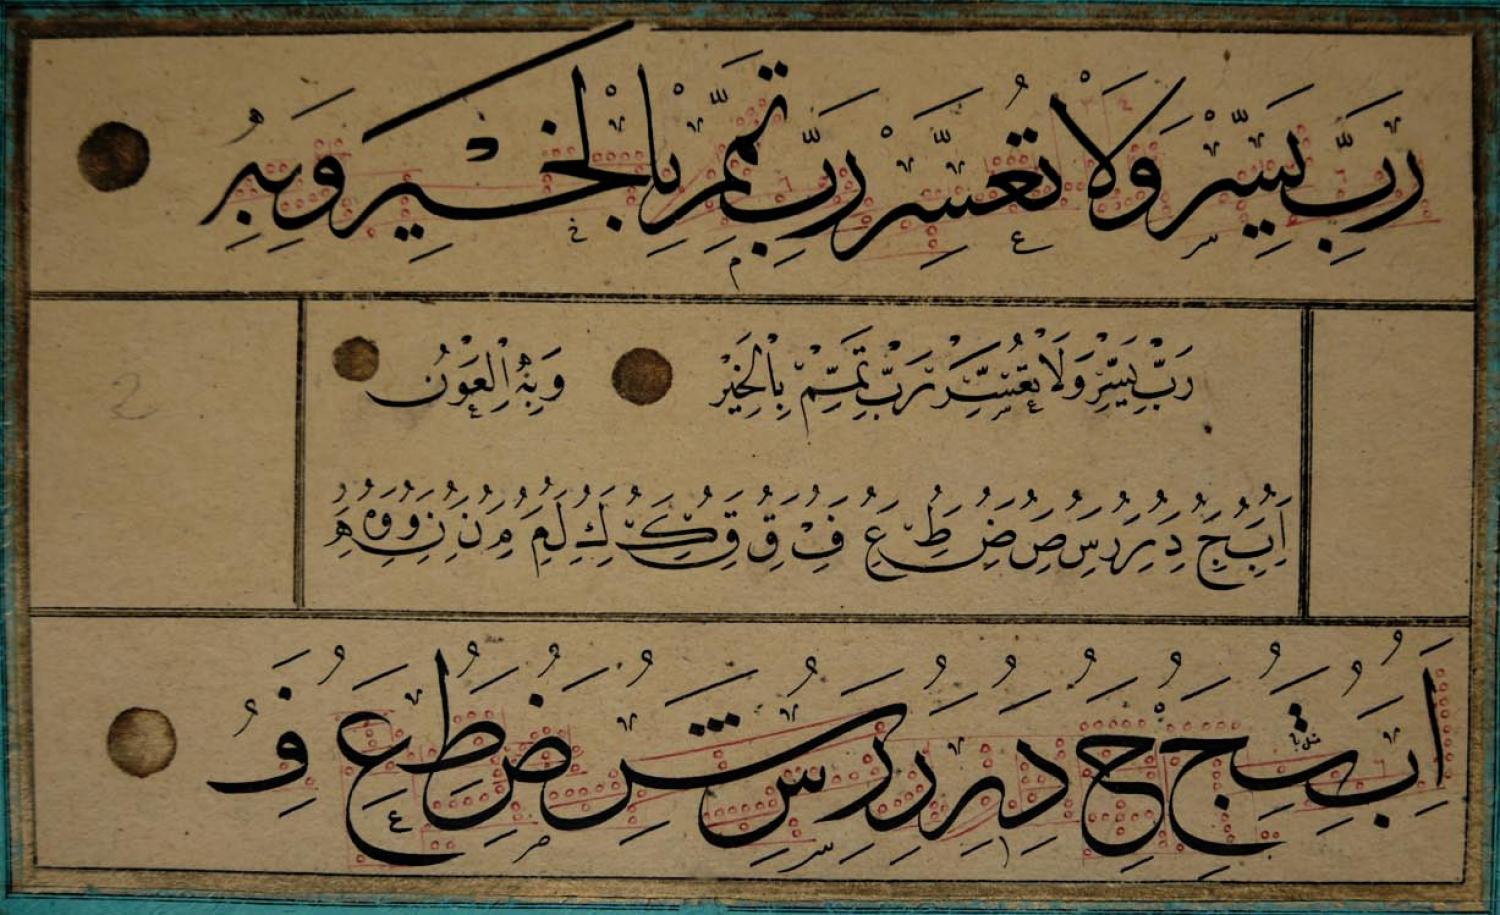 رَبِّ يَسِّرْ وَلَا تُعَسِّرْ رَبِّ تَمِّمْ بِالْخَيْرِ وَبِهِ
رَبِّ يَسِّرْ وَلَا تُعَسِّرْ رَبِّ تَمِّمْ بِالْخَيْرِ وَبِهِ الْعَوْنُ
ا ب ج د ر ر س ص ض ط ع ف ق ق ك ك ل م م ن ن و و ه
ا ب ت ج ح د ر ر ر س ش ض ط ع ف